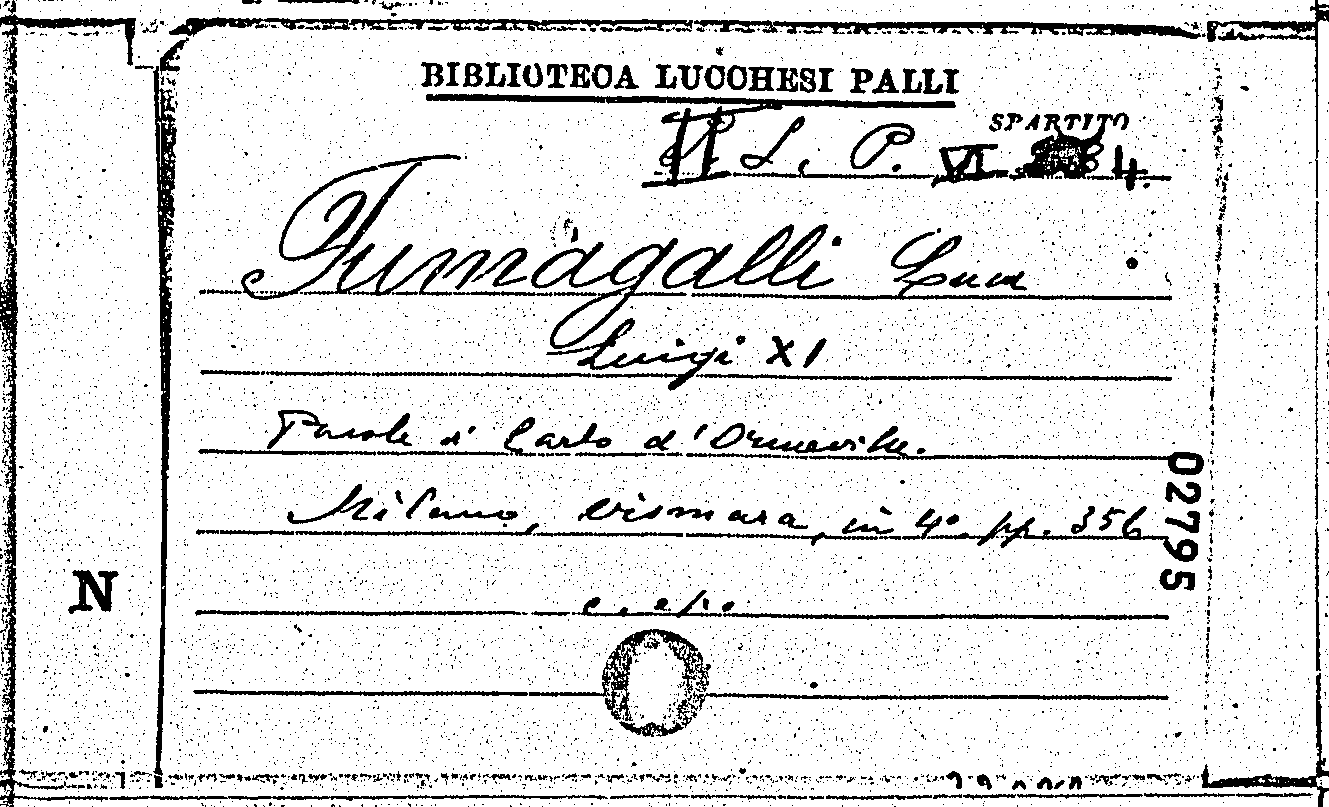 BIBLIOTECA LUCCHESI PALLI
SPARTITO
L. P. VI 4.
Fumagalli Luca
Luigi XI
Parole di Carlo d'Ormeville.
Milano, Vismara, in 4º. pp. 356
02795
N